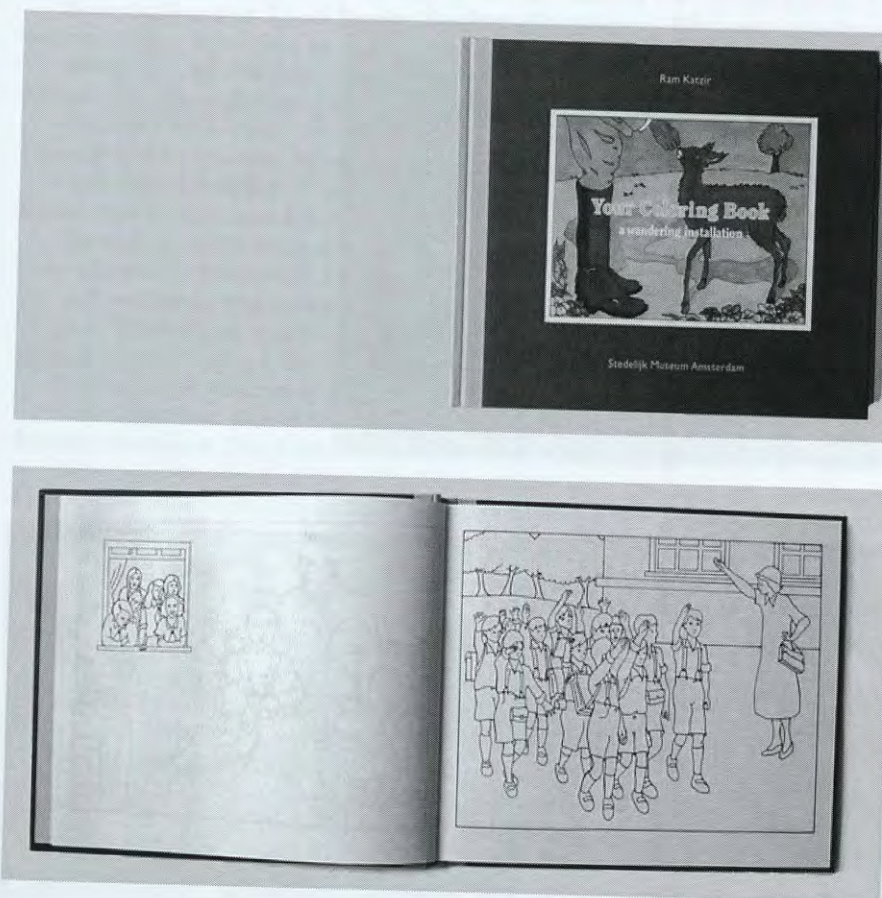 Ram Katzir
Your Coloring Book
a wandering installation
Stedelijk Museum Amsterdam